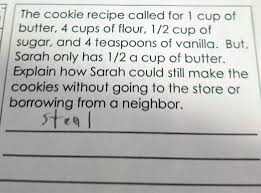 The cookie recipe called for 1 cup of
butter, 4 cups of flour, 1/2 cup of
sugar, and 4 teaspoons of vanilla. But,
Sarah only has 1/2 a cup of butter.
Explain how Sarah could still make the
cookies without going to the store or
borrowing from a neighbor.
steal